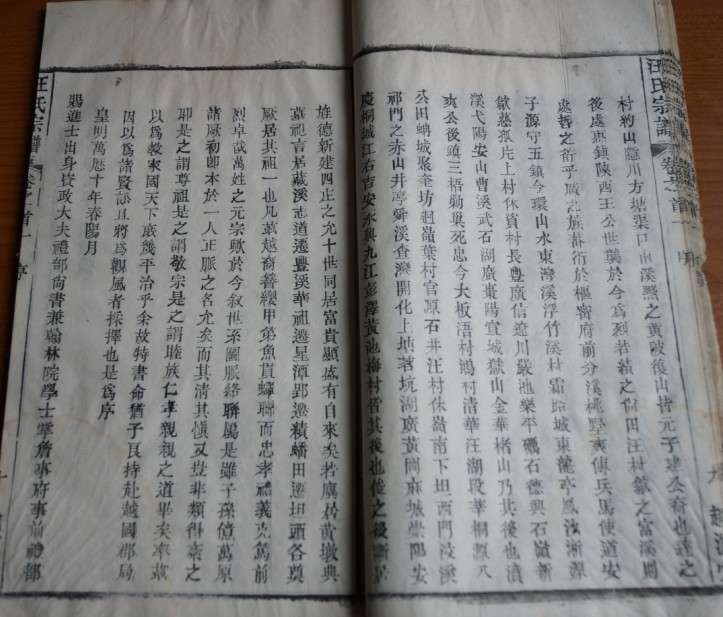 汪氏宗譜
卷之首一
村約山隱川方塘渠口山溪黟之黃陂後山皆元子建公裔也達之
後處惠鎮陝西王公世襲於今為烈若績之份田汪村歙之富溪則
子源守五鎮今環山水東灣溪浮竹溪村霜路城東龍亭鳳汝浙源
歙慈孤片上村休資村長豐廣信遼川嚴池樂平磯石德興石嶺新
溪弋陽安山曹溪武石湖廣棗陽宜城獄山金華楮山乃其後也瀆
爽公後鎮三梧勦巢死忠今大板浯村鴻村清華汪湖段莘桐源八
公田蚺城聚奎坊迴嶺葉村官源石井汪村休嶺南下坦西門汶溪
祁門之赤山井亭舜溪查灣開化上塘茗坑湖廣黃岡麻城崇陽安
慶桐城江右吉安永興九江彭澤黃池梅村皆其後也俊之後漸居
旌德新建四疋之允十世同居富貴顯盛有自來矣若廣居黃墩典
墓祀言居藏溪志道遷豐溪華祖遷星潭郢遷積蟠田遷坦頭各奠
厥居其祖一也凡茲越裔簪纓甲第魚貫蟬聯而忠孝禮義克篤前
烈卓哉萬姓之元宗歟於今敘世系圖脈絡聯屬是雖子孫億萬原
諸厥初即本於一人正脈之名允矣而其清其慎又豈非類得秦之
即是之謂尊祖是之謂敬宗是之謂睦族仁孝親親之道畢矣奉茲
以為教家國天下庶幾平治乎余故特書命猶子瓦持赴越國郡局
因以為諸賢誌且將為觀風者採擇也是為序
皇明萬曆十年春陽月
賜進士出身資政大夫禮部尚書兼翰林院學士掌詹事府事前禮部
汪氏宗譜
卷之首一
序